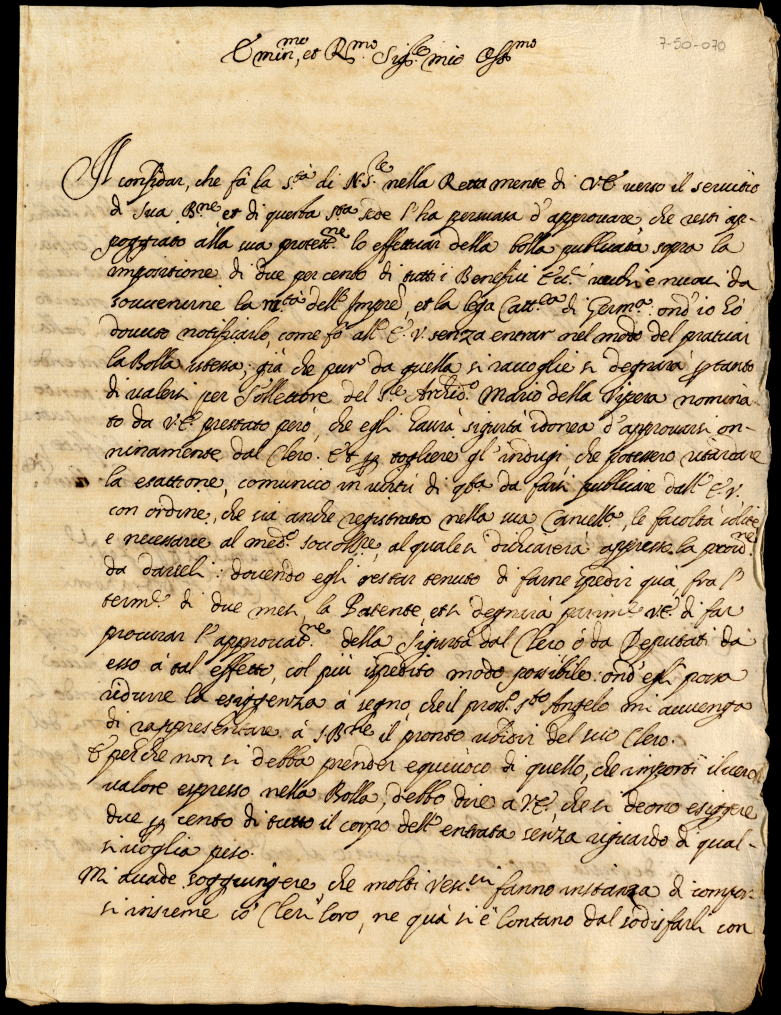 7-50-070
Emin.mo, et R.mo Sig.re mio Oss.mo
Il confidar, che fà la S.tà di N.S.re nella Retta mente di V.E. verso il servitio
di Sua B.ne et di questa S.ta sede l'ha persuasa d'approvare che resti ap-
poggiato alla sua protett.ne lo effettuar della bolla publicata sopra la
impositione di due per cento di tutti i Beneficii Ecc. vecchi e nuovi da
souvenirne la M.tà dell' Imper.e, et la lega Catt.ca di Germ.a: ond'io hò
dovuto notificarlo, come fò all' E.V. senza entrar nel modo del praticar
la Bolla istessa; già che pur da quella si raccoglie si degnarà pertanto
di valersi per Collettore del S.re Archid.o Mario della Vipera nomina-
to da V.E. prestato però, che egli haurà sigurtà idonea d'approvarsi on-
ninamente dal Clero. Et per togliere gl'indugi che potessero ritardare
la esattione, comunico in virtù di q.sta da farsi publicare dall' E.V.
con ordine, che sia anche registrata nella sua Cancell.a, le facoltà solite
e necessarie al med.o , al quale si dichiarerà appresso la provis.ne
da darseli: dovendo egli restar tenuto di farne spedir quà fra l'
term.e di due mesi, la Patente, et si degnarà parim.e V.E. di far
procurar l'approvat.ne della Sigurtà dal Clero ó da Deputati da
esso à tal effetto, col più ispedito modo possibile: ond'egli possa
ridurre la esiggenza à segno che il pross.o S.to Angelo mi avvenga
di rappresentare à S.B.ne il pronto ubidir del suo Clero.
E perche non si debba prender equivoco di quello, che importi il vero
valore espresso nella Bolla, debbo dire a V.E. che si deono esiggere
due per cento di tutto il corpo dell' entrata senza riguardo di qual-
si voglia peso.
Mi accade soggiungere che molti Vesc.vi fanno instanza di compor-
si insieme co' Cleri loro, ne quà si è lontano dal sodisfarli con